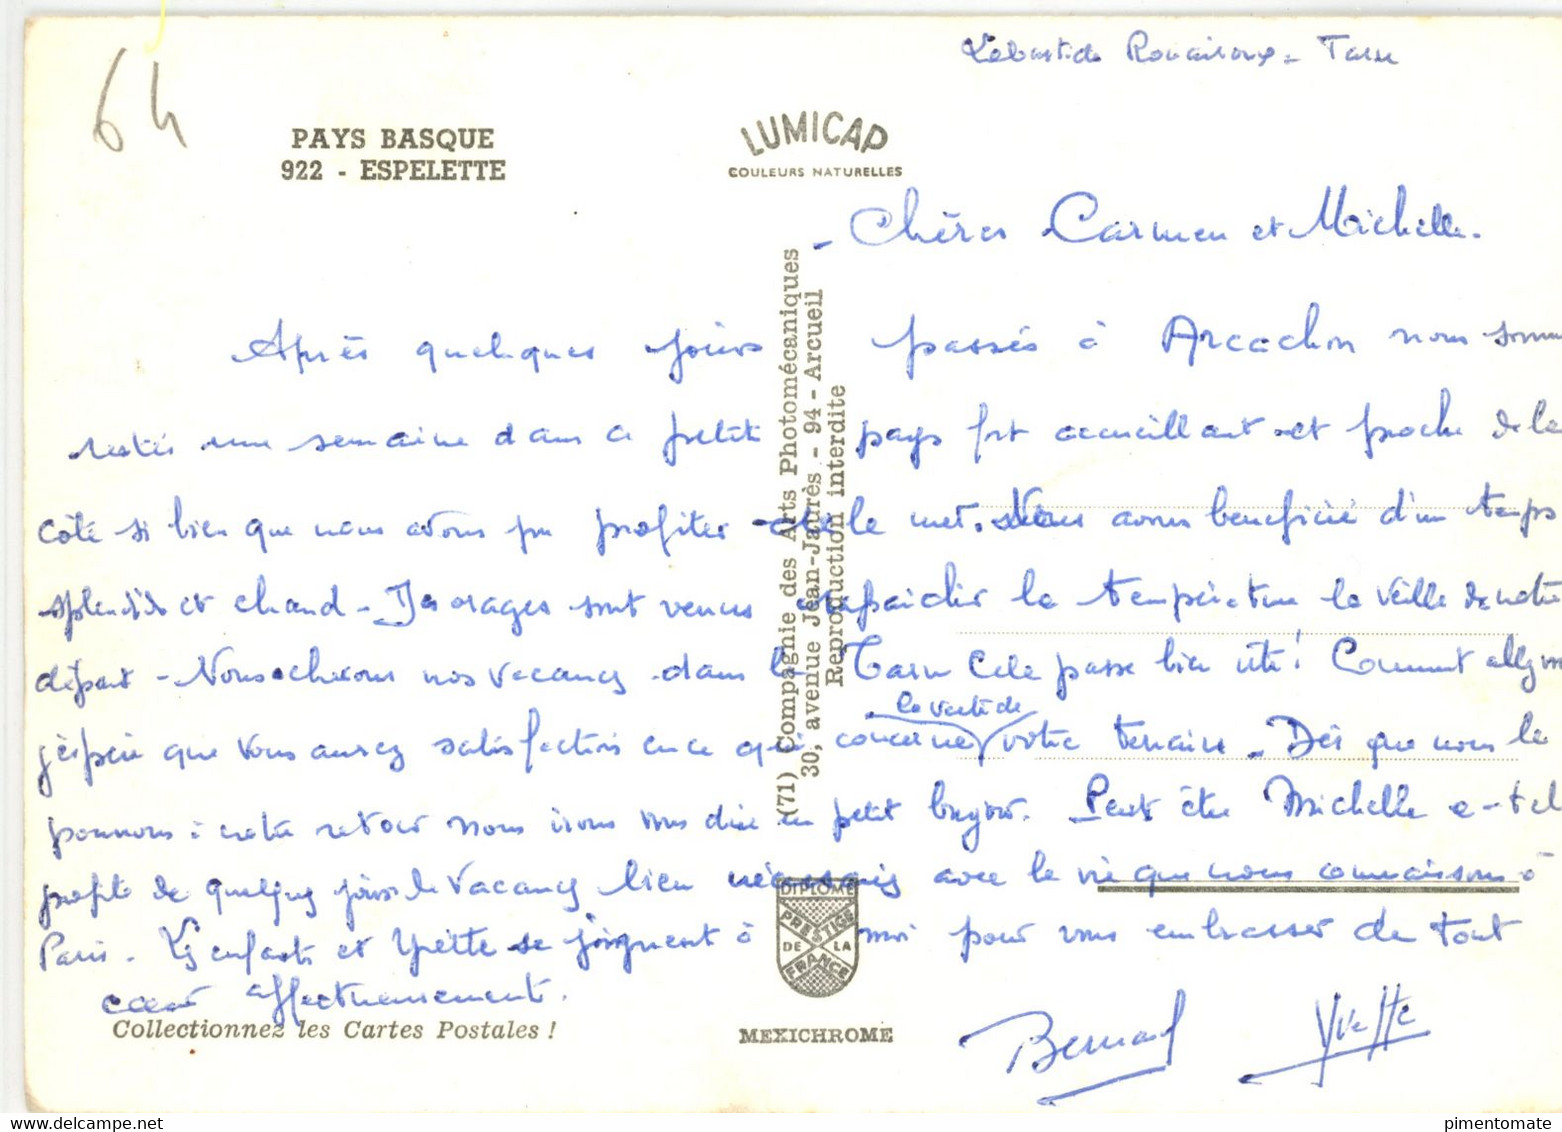 Labastide Rouairoux - Tarn
64
PAYS BASQUE
922 - ESPELETTE
LUMICAP
COULEURS NATURELLES
- Chères Carmen et Michelle.
Après quelques jours passés à Arcachon nous somm
restés une semaine dans ce petit pays fort accueillant et proche de la
côte si bien que nous avons pu profiter de la mer. Nous avons beneficié d'un temps
splendide et chaud - Des orages sont venus rafraichir la température la veille de notre
départ - Nous achevons nos vacances dans le Tarn Cela passe bien vite! Comment allez vous
j'espère que vous aurez satisfaction en ce qui concerne la vente de votre terrain - Dès que nous le
pourrons à notre retour nous irons vous dire un petit bonjour. Peut être Michelle a-t-el
profité de quelques jours de vacances bien nécessaires avec la vie que nous connaissons à
Paris. Les enfants et Yvette se joignent à moi pour vous embrasser de tout
cœur affectueusement.
Bernard Yvette
(71) Compagnie des Arts Photomécaniques
30, avenue Jean-Jaurès - 94 - Arcueil
Reproduction interdite
DIPLOME
PRESTIGE
DE LA
FRANCE
Collectionnez les Cartes Postales !
MEXICHROME
pimentomate